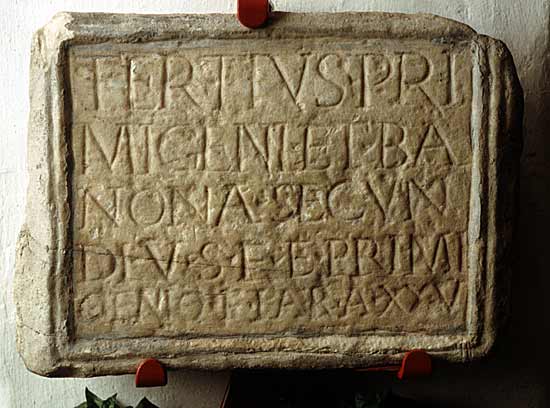 TERTIVS·PRI
MIGENI·ET·BA
NONA·SECVN
DI·V·S·F·E·PRIMI
GENIO·F·KAR·A·XXV